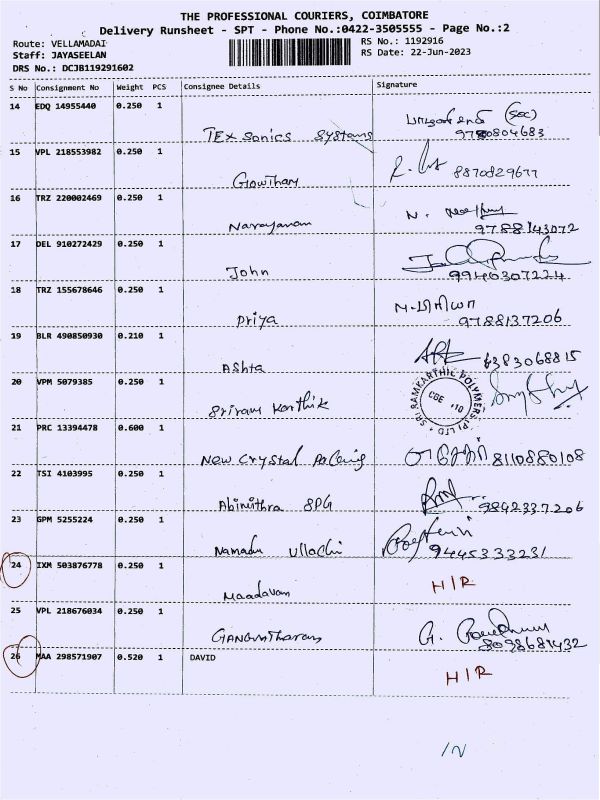 THE PROFESSIONAL COURIERS, COIMBATORE
Delivery Runsheet - SPT - Phone No.:0422-3505555 - Page No.:2
Route: VELLAMADAI
RS No.: 1192916
Staff: JAYASEELAN
RS Date: 22-Jun-2023
DRS No.: DCJB119291602
S No Consignment No Weight PCS Consignee Details Signature
14 EDQ 14955440 0.250 1
Tex Sonics Systems
(Sec)
9780804683
15 VPL 218553982 0.250 1
Gowtham
8870829677
16 TRZ 220002469 0.250 1
Narayanan
N.
9788143072
17 DEL 910272429 0.250 1
John
9940307224
18 TRZ 155678646 0.250 1
Priya
M.பிரியா
9788137206
19 BLR 490850930 0.210 1
Ashta
6383068815
20 VPM 5079385 0.250 1
Sriram Karthik
SRI RAMKARTHIC POLYMERS (P) LTD
CBE
21 PRC 13394478 0.600 1
New Crystal
8110880108
22 TSI 4103995 0.250 1
Abimithra SPG
9842337206
23 GPM 5255224 0.250 1
Namadu Ullachi
9445333231
24 IXM 503876778 0.250 1
Maadavan
H/R
25 VPL 218676034 0.250 1
Gangutharan
G.
8098681432
26 MAA 298571907 0.520 1 DAVID
H/R